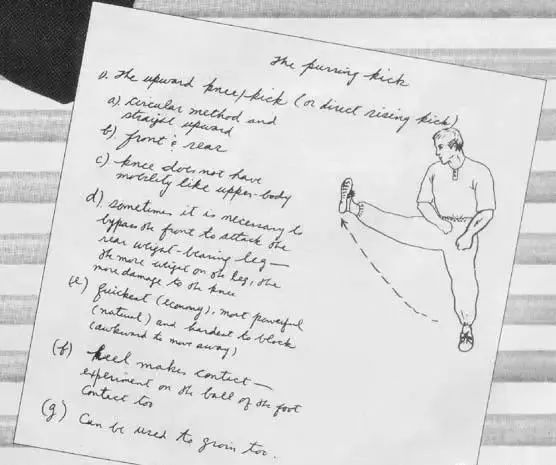 The purring kick
1. The upward knee/kick (or direct rising kick)
a). Circular method and
straight upward
b) front & rear
c) knee does not have
mobility like upper-body
d) sometimes it is necessary to
bypass the front to attack the
rear weight-bearing leg—
the more weight on the leg, the
more damage to the knee
(e) Quickest (economy), most powerful
(natural) and hardest to block
(awkward to move away)
(f) heel makes contact—
experiment on the ball of the foot
contact too
(g) Can be used to groin too.